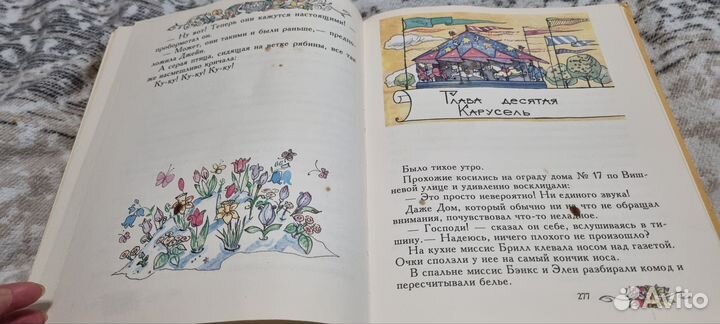 — Ну вот! Теперь они кажутся настоящими! —
пробормотал он.
— Может, они такими и были раньше,— предпо-
ложила Джейн.
А серая птица, сидящая на ветке рябины, все так
же насмешливо кричала:
Ку-ку! Ку-ку! Ку-ку!
Глава десятая
Карусель
Было тихое утро.
Прохожие косились на ограду дома № 17 по Виш-
невой улице и удивленно восклицали:
— Это просто невероятно! Ни единого звука!
Даже Дом, который обычно ни на что не обращал
внимания, почувствовал что-то неладное.
— Господи! — сказал он себе, вслушиваясь в ти-
шину.— Надеюсь, ничего плохого не произошло?
На кухне миссис Брилл клевала носом над газетой.
Очки сползли у нее на самый кончик носа.
В спальне миссис Бэнкс и Элен разбирали комод и
пересчитывали белье.
277
Avito